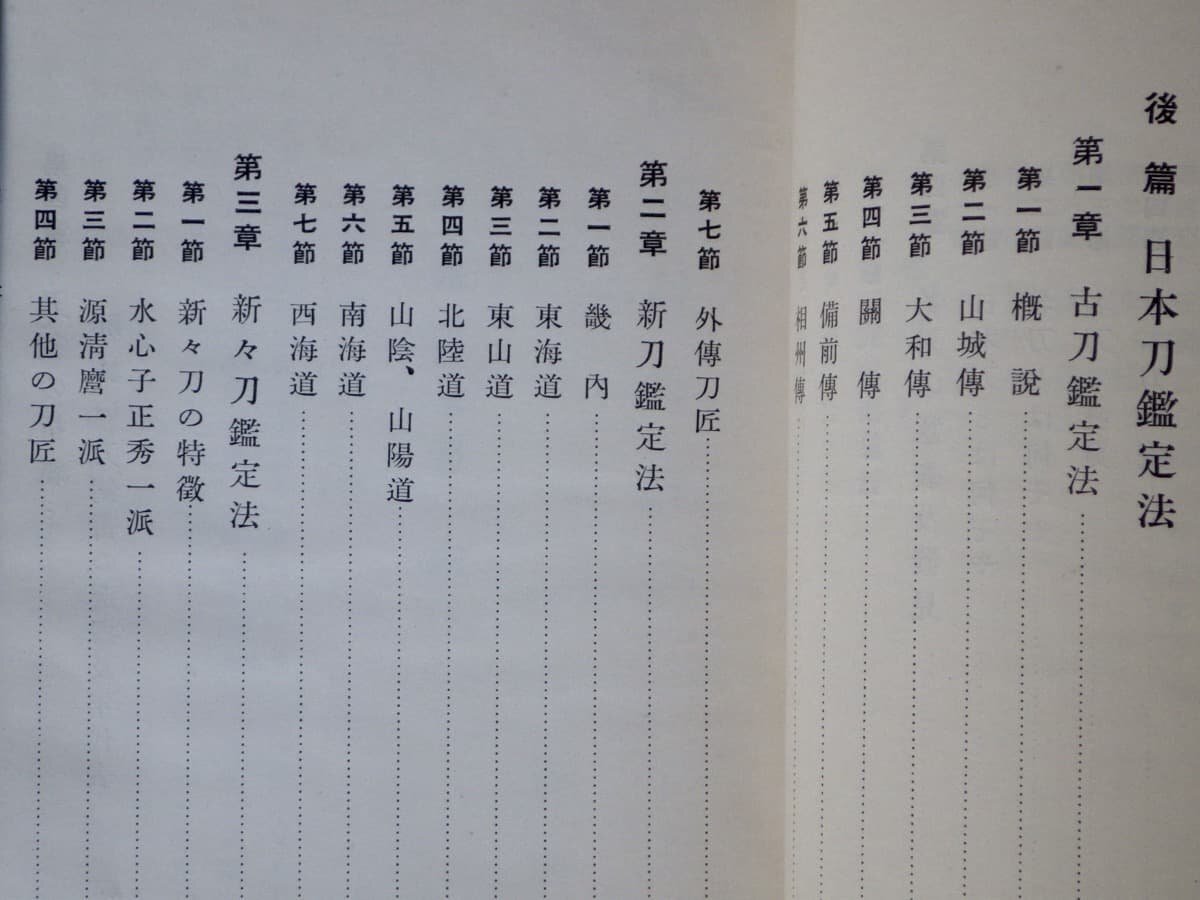 後篇 日本刀鑑定法
第一章 古刀鑑定法
第一節 槪說
第二節 山城傳
第三節 大和傳
第四節 關傳
第五節 備前傳
第六節 相州傳
第七節 外傳刀匠
第二章 新刀鑑定法
第一節 畿內
第二節 東海道
第三節 東山道
第四節 北陸道
第五節 山陰、山陽道
第六節 南海道
第七節 西海道
第三章 新々刀鑑定法
第一節 新々刀の特徵
第二節 水心子正秀一派
第三節 源淸麿一派
第四節 其他の刀匠